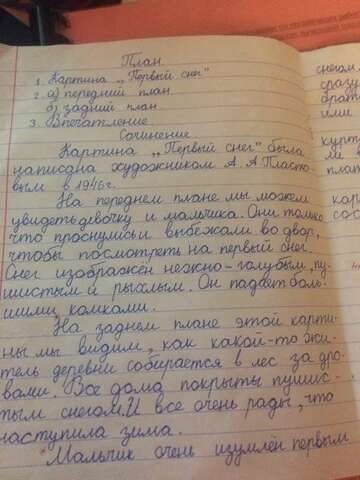 План
1. Картина „Первый снег"
2. а) передний план
б) задний план
3. Впечатление.
Сочинение
Картина „Первый снег" была
написана художником А. А Пласто-
вым в 1946г.
На переднем плане мы можем
увидеть девочку и мальчика. Они только
что проснулись и выбежали во двор,
чтобы посмотреть на первый снег.
Снег изображён нежно-голубым, пу-
шистым и рыхлым. Он падает боль-
шими комками.
На заднем плане этой карти-
ны мы видим, как какой-то жи-
тель деревни собирается в лес за дро-
вами. Все дома покрыты пушис-
тым снегом. И все очень рады, что
наступила зима.
Мальчик очень изумлён первым
снегом.
сразу
брат
или
курт
ми в
плат
кар
со с